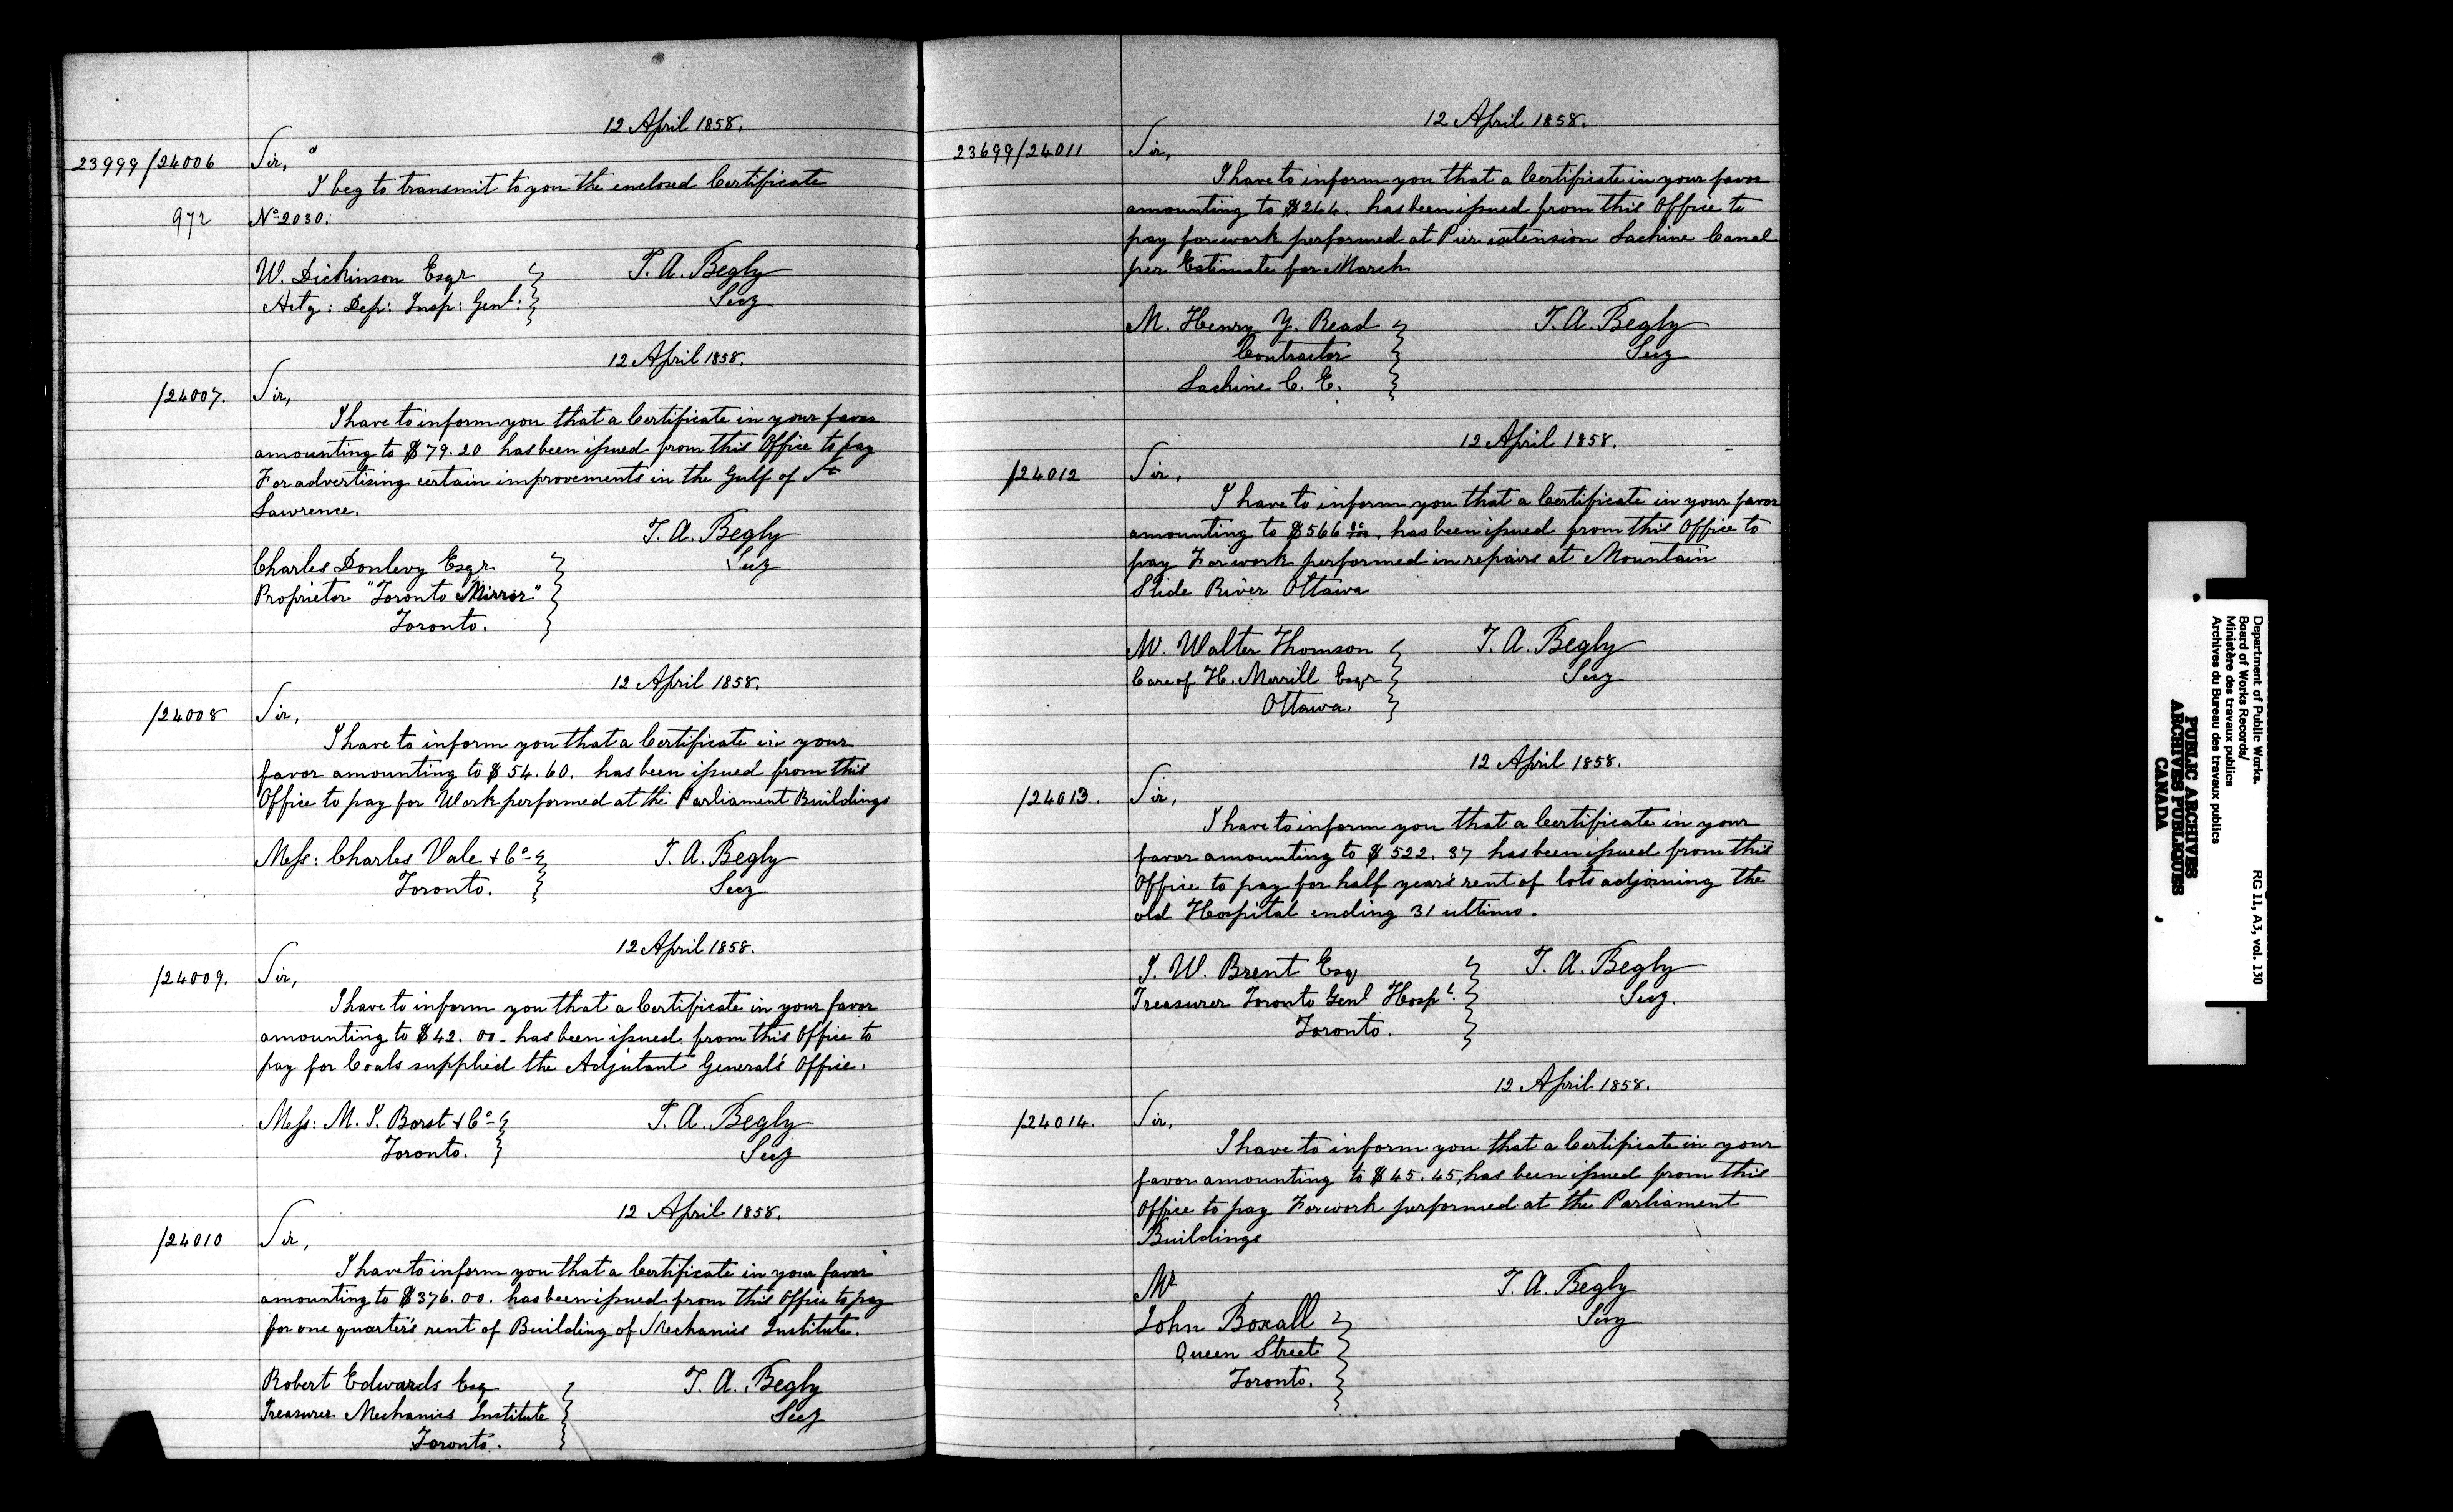 12 April 1858.
23999/24006 Sir,
I beg to transmit to you the enclosed Certificate
972 No 2030.
W. Dickinson Esqr T. A. Begly
Actg: Dep: Insp: Genl: Secy
12 April 1858.
/24007. Sir,
I have to inform you that a Certificate in your favor
amounting to $79.20 has been issued from this Office to pay
For advertising certain improvements in the Gulf of St
Lawrence.
T. A. Begly
Charles Donlevy Esqr Secy
Proprietor "Toronto Mirror"
Toronto.
12 April 1858.
/24008 Sir,
I have to inform you that a Certificate in your
favor amounting to $54.60. has been issued from this
Office to pay for Work performed at the Parliament Buildings
Mess: Charles Vale & Co T. A. Begly
Toronto. Secy
12 April 1858.
/24009. Sir,
I have to inform you that a Certificate in your favor
amounting to $42.00 - has been issued from this Office to
pay for Coals supplied the Adjutant General's Office.
Mess: M. S. Borst & Co T. A. Begly
Toronto. Secy
12 April 1858.
/24010 Sir,
I have to inform you that a Certificate in your favor
amounting to $376.00. has been issued from this Office to pay
for one quarter's rent of Building of Mechanics Institute.
Robert Edwards Esq T. A. Begly
Treasurer Mechanics Institute Secy
Toronto.
12 April 1858.
23699/24011 Sir,
I have to inform you that a Certificate in your favor
amounting to $264. has been issued from this Office to
pay for work performed at Pier extension Lachine Canal
per Estimate for March
M. Henry Y. Read T. A. Begly
Contractor Secy
Lachine C. E.
12 April 1858.
/24012 Sir,
I have to inform you that a Certificate in your favor
amounting to $566 has been issued from this Office to
pay For work performed in repairs at Mountain
Slide River Ottawa
M. Walter Thomson T. A. Begly
Care of H. Merrill Esqr Secy
Ottawa.
12 April 1858.
/24013.. Sir,
I have to inform you that a Certificate in your
favor amounting to $522.37 has been issued from this
Office to pay for half year's rent of lots adjoining the
old Hospital ending 31 ultimo.
J. W. Brent Esq T. A. Begly
Treasurer Toronto Genl Hospl. Secy.
Toronto.
12 April 1858.
/24014. Sir,
I have to inform you that a Certificate in your
favor amounting to $45.45, has been issued from this
Office to pay For work performed at the Parliament
Buildings
Mr T. A. Begly
John Boxall Secy
Queen Street
Toronto.
Department of Public Works. RG 11, A3, vol. 130
Board of Works Records/
Ministère des travaux publics
Archives du Bureau des travaux publics
PUBLIC ARCHIVES
ARCHIVES PUBLIQUES
CANADA